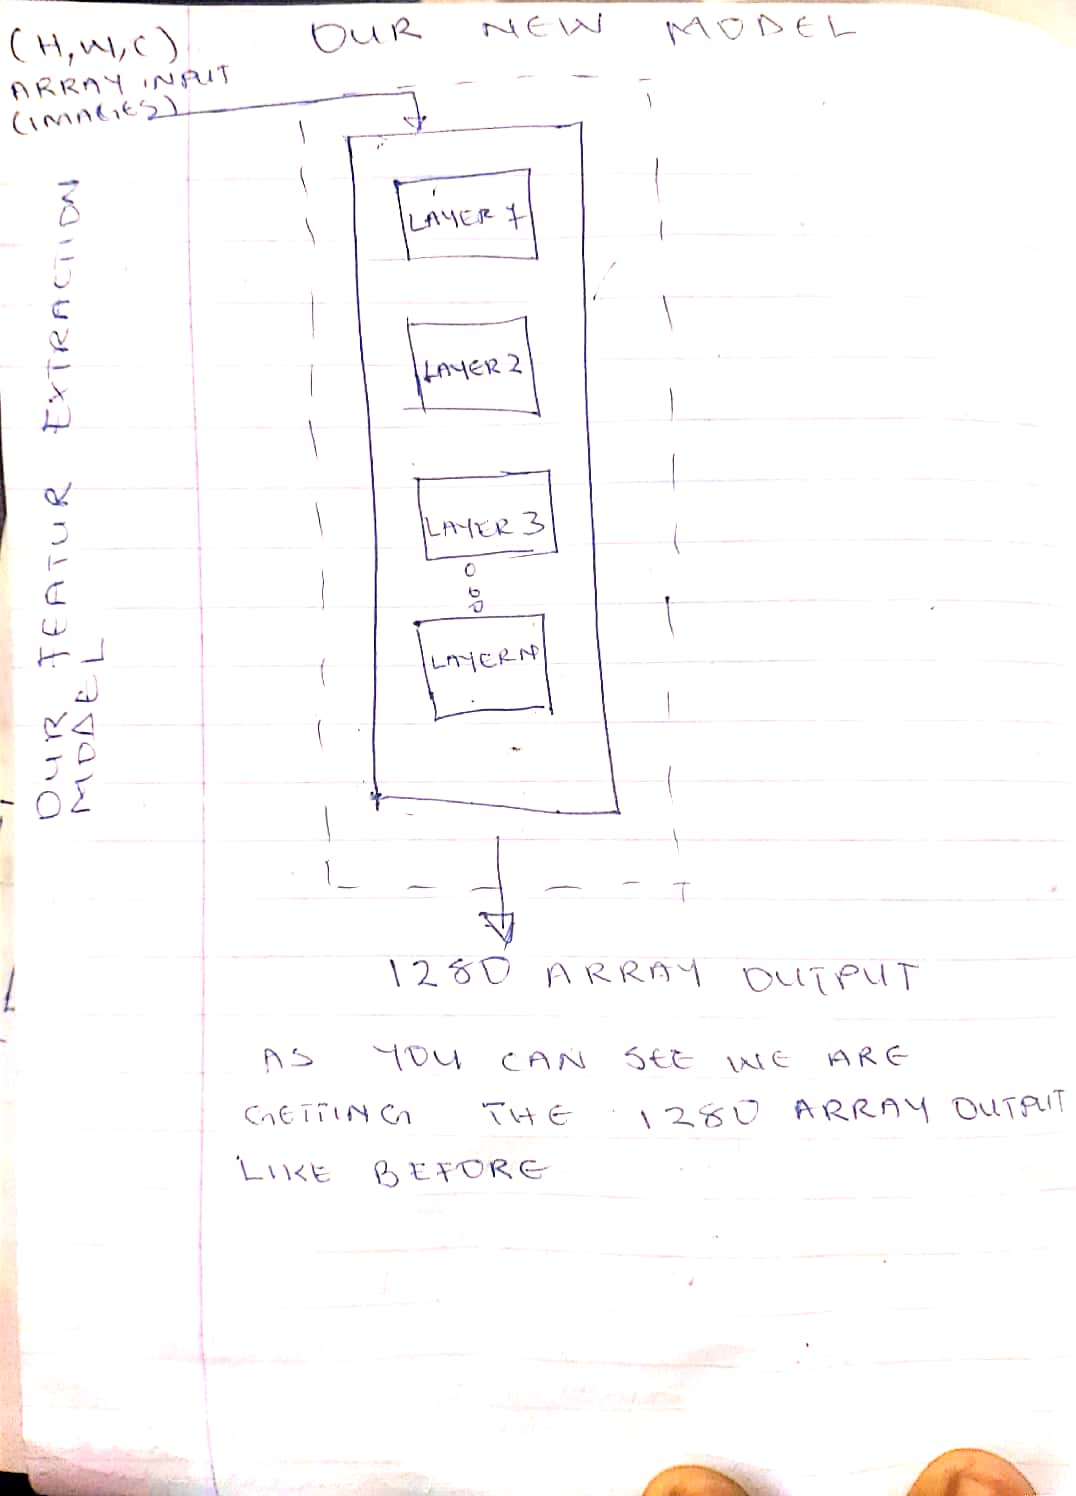 OUR NEW MODEL
(H,W,C)
ARRAY INPUT
(IMAGES)
OUR FEATUR EXTRACTION
MODEL
LAYER 1
LAYER 2
LAYER 3
LAYER N
1280 ARRAY OUTPUT
AS YOU CAN SEE WE ARE
GETTING THE 1280 ARRAY OUTPUT
LIKE BEFORE